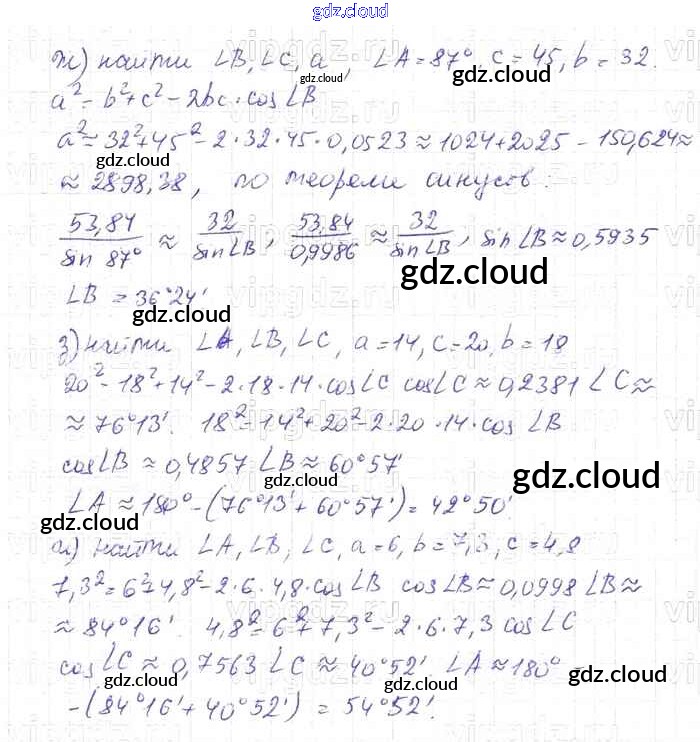 gdz.cloud
ж) найти ∠B, ∠C, a, ∠A = 87°, c = 45, b = 32.
gdz.cloud
a² = b² + c² - 2bc · cos∠B
a² = 32² + 45² - 2 · 32 · 45 · 0,0523 ≈ 1024 + 2025 - 150,624 ≈
gdz.cloud gdz.cloud
≈ 2898,38, по теореме синусов:
53,84 / sin 87° ≈ 32 / sin∠B, 53,84 / 0,9986 ≈ 32 / sin∠B, sin∠B ≈ 0,5935
gdz.cloud
∠B = 36°24'
gdz.cloud
з) найти ∠A, ∠B, ∠C, a = 14, c = 20, b = 18
20² = 18² + 14² - 2 · 18 · 14 · cos∠C cos∠C ≈ 0,2381 ∠C ≈
≈ 76°13'. 18² = 14² + 20² - 2 · 20 · 14 · cos∠B
cos∠B ≈ 0,4857 ∠B ≈ 60°57'
gdz.cloud
∠A ≈ 180° - (76°13' + 60°57') = 42°50'
gdz.cloud
и) найти ∠A, ∠B, ∠C, a = 6, b = 7,3, c = 4,8
7,3² = 6² + 4,8² - 2 · 6 · 4,8 · cos∠B cos∠B ≈ 0,0998 ∠B ≈
≈ 84°16'. 4,8² = 6² + 7,3² - 2 · 6 · 7,3 cos∠C
cos∠C ≈ 0,7563 ∠C ≈ 40°52' ∠A ≈ 180° -
gdz.cloud gdz.cloud
- (84°16' + 40°52') = 54°52'.